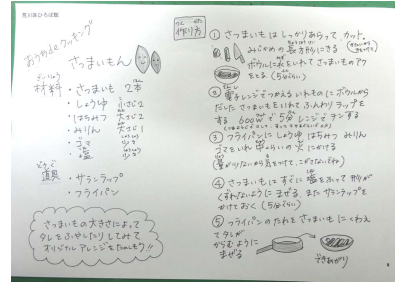 荒川区ひろば館
おうちdeクッキング
さつまいもん
ざいりょう
材料
・さつまいも 2本
・しょうゆ 小さじ2
・はちみつ 大さじ2
・みりん 大さじ1
・ゴマ 少々
・塩 少々
どうぐ
道具
・サランラップ
・フライパン
さつまいもの大きさによって
タレをふやしたりしてみて
オリジナルアレンジをたのしもう!!
作り方
① さつまいもは しっかりあらって カット。
みじかめの 長方形にきる
ボウルに水をいれて さつまいものアク
をとる (5分ぐらい)
② 電子レンジでつかえる いれものに ボウルから
だした さつまいもをいれて ふんわり ラップを
する 600Wで 5分 レンジで チンする
③ フライパンに しょうゆ はちみつ みりん
ゴマをいれ 中ぐらいの 火にかける
(量が少ないから 気をつけて、こがさないでね)
④ さつまいもに すぐに 塩をふって 形が
くずれないように まぜる。また サランラップを
かけておく (5分ぐらい)
⑤ フライパンの たれを さつまいもに くわえ
てタレが
からむように
まぜる
できあがり